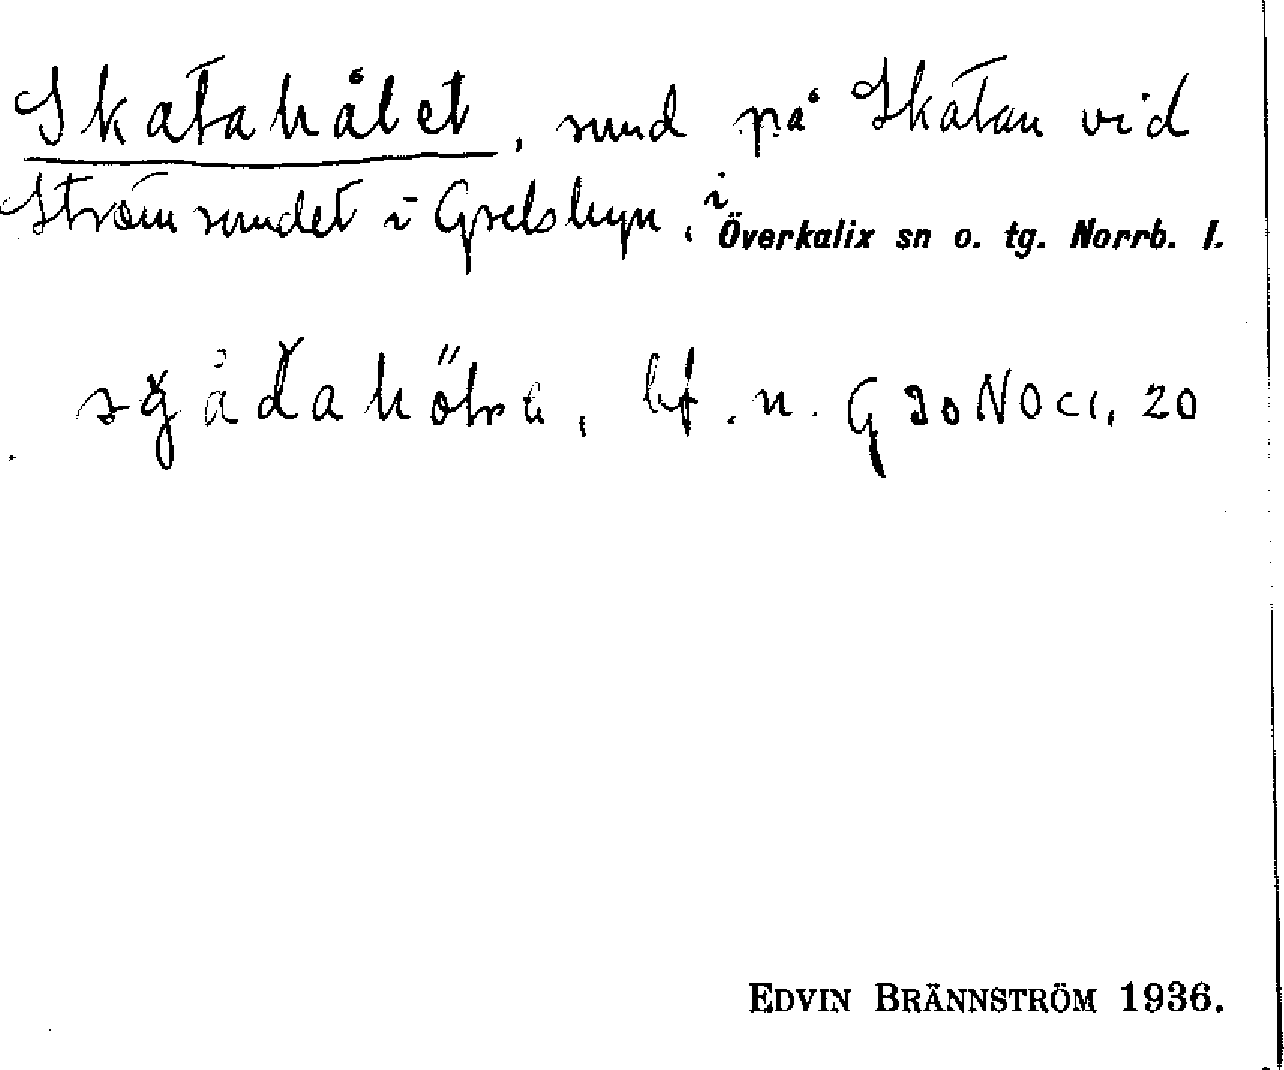 Skatahålet, sund på Skatan vid
Strömsundet i Grelsbyn, i Överkalix sn o. tg. Norrb. l.
bf. n. G 30 NO c1, 20
EDVIN BRÄNNSTRÖM 1936.